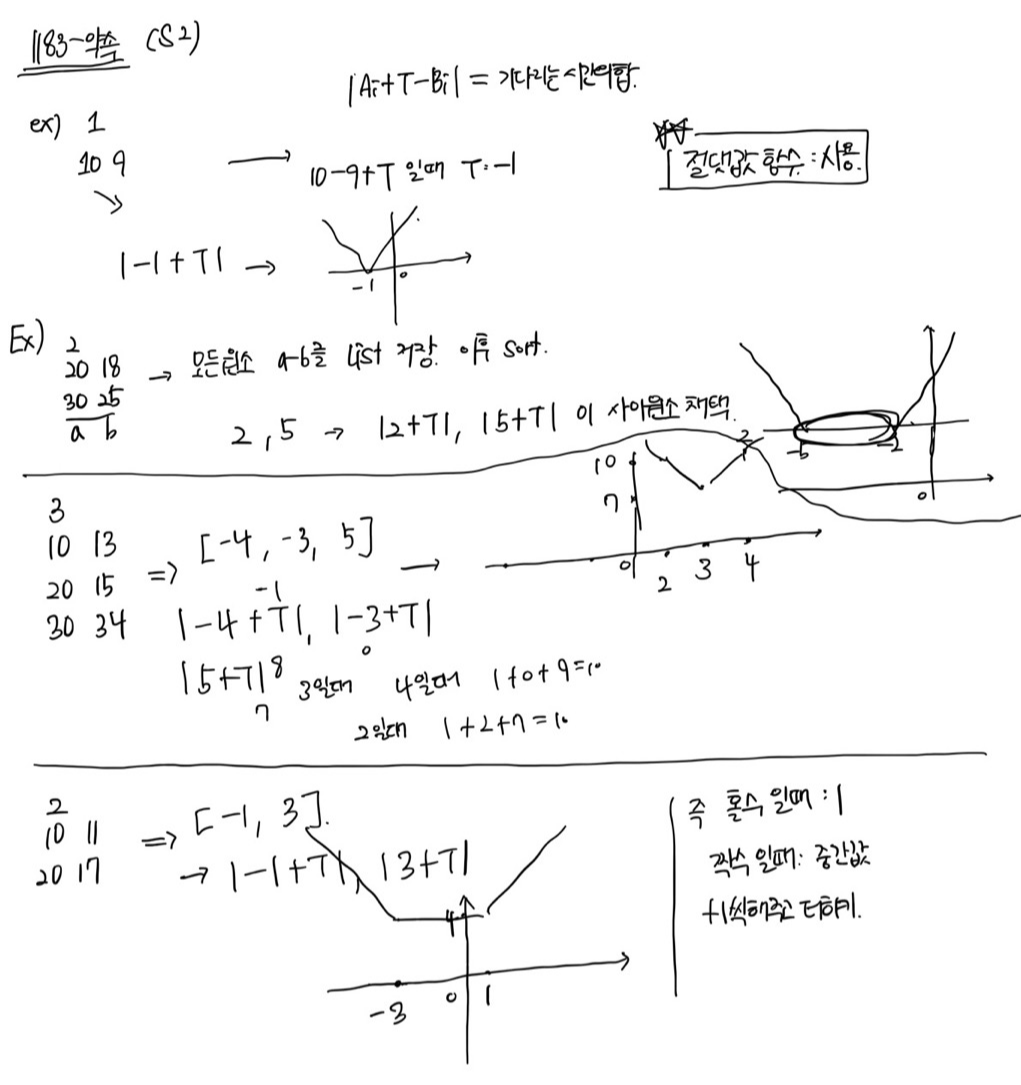 1183-약속 (S2)
|Ai+T-Bi| = 기다리는 시간의 합.
ex) 1
10 9
10-9+T 일때 T=-1
절댓값 함수 : 사용.
|-1+T| →
-1
0
Ex) 2
20 18
30 25
a b
→ 모든 원소 a-b를 List 저장. 이후 sort.
2, 5 → |2+T|, |5+T| 이 사이 원소 채택.
-5
-2
0
3
10 13
20 15
30 34
=> [-4, -3, 5] →
-1
|-4+T|, |-3+T|
0
|5+T| 8
7
3일때
4일때 1+0+9=10
2일때 1+2+7=10
10
7
0 2 3 4
2
10 11
20 17
=> [-1, 3].
→ |-1+T|, |3+T|
4
-3
0
1
즉 홀수 일때 : 1
짝수 일때 : 중간값
+1씩해주고 더하기.